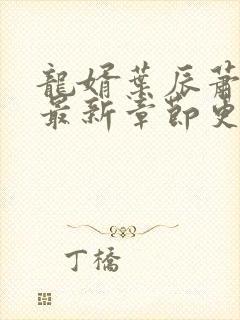 龍婿葉辰蕭
最新章節更
丁橋